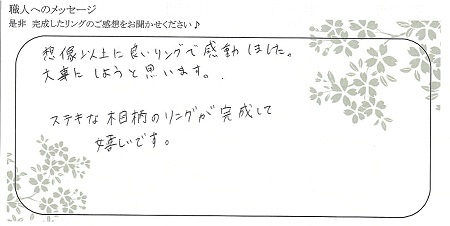 職人へのメッセージ
是非 完成したリングのご感想をお聞かせください♪
想像以上に良いリングで感動しました。
大事にしようと思います。
ステキな木目柄のリングが完成して
嬉しいです。